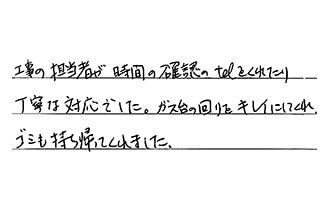 工事の担当者が時間の確認のtelをくれたり
丁寧な対応でした。ガス台の回りもキレイにしてくれ、
ゴミも持ち帰ってくれました。